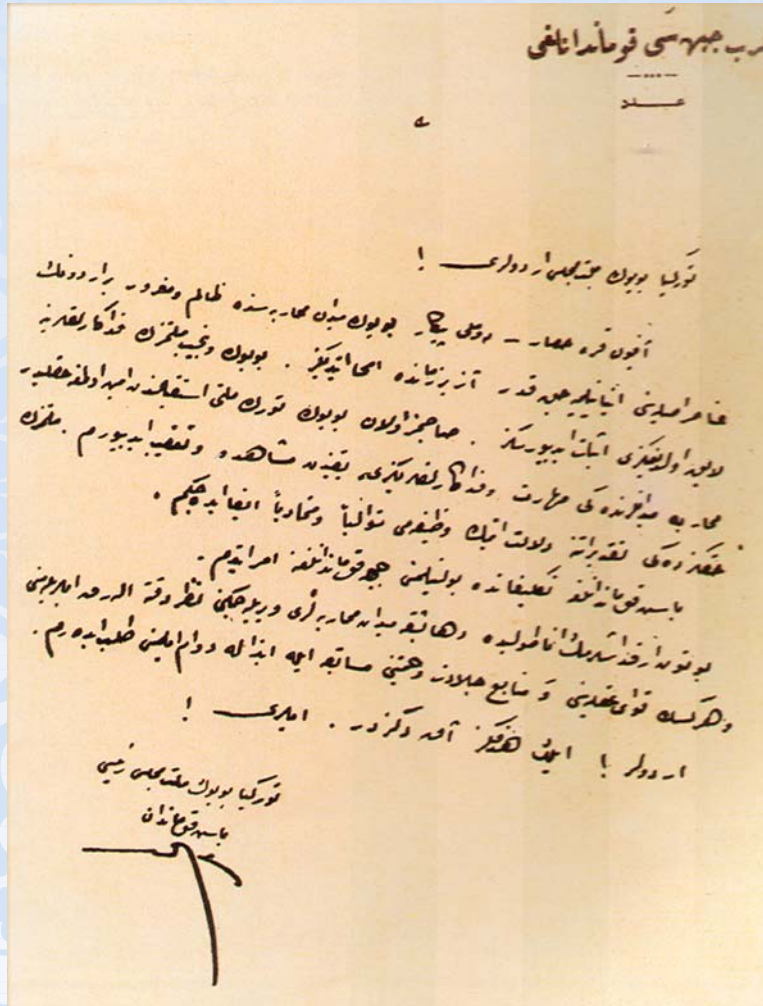 غرب جبهه سی قوماندانلغی
عدد
توركیا بویوك ملت مجلسی اردولری !
آفیون قره حصار - دوملی پیكار بویوك میدان محاربه سنده ظالم و مغرور بر اردونك
عناصر اصلیه سنی اینانیلمیه جق قدر آز بر زمانده امحا ایتدیكز . بویوك و نجیب ملتمزك فداكارلقلرینه
لایق اولدیغكزی اثبات ایدییورسكز . صاحبمز اولان بویوك تورك ملتی استقبالندن امین اولمغه حقلیدر
محاربه میدانلرنده كی مهارت و فداكارلقلریكزی یقیندن مشاهده و تعقیب ایدییورم . ملتمزك
حقكزده كی تقدیراتنه دلالت ایتمك وظیفه می متوالیاً و متمادیاً ایفا ایده جكم .
باش قوماندانلغه تكلیفاتده بولنیلمسنی جبهه قوماندانلغنه امر ایتدم .
بوتون آرقداشلرمك آناطولیده دها باشقه میدان محاربه لری ویریله جكنی نظر دقته آله رق ایلریله مسنی
و هركسك قوای عقلیه سنی و منابع جلادت و حمیتنی مسابقه ایله ابذاله دوام ایلمسنی طلب ایده رم .
اردولر ! ایلك هدفكز آق دكزدر . ایلری !
توركیا بویوك ملت مجلسی رئیسی
باش قوماندان